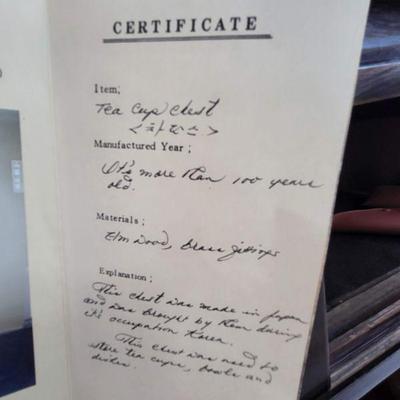 CERTIFICATE
Item;
Tea cup chest
Manufactured Year ;
It's more than 100 years
old.
Materials ;
Elm wood, brass fittings
Explanation ;
This chest was made in Japan
and was brought by them during
it's occupation Korea.
This chest was used to
store tea cups, bowls and
dishes.